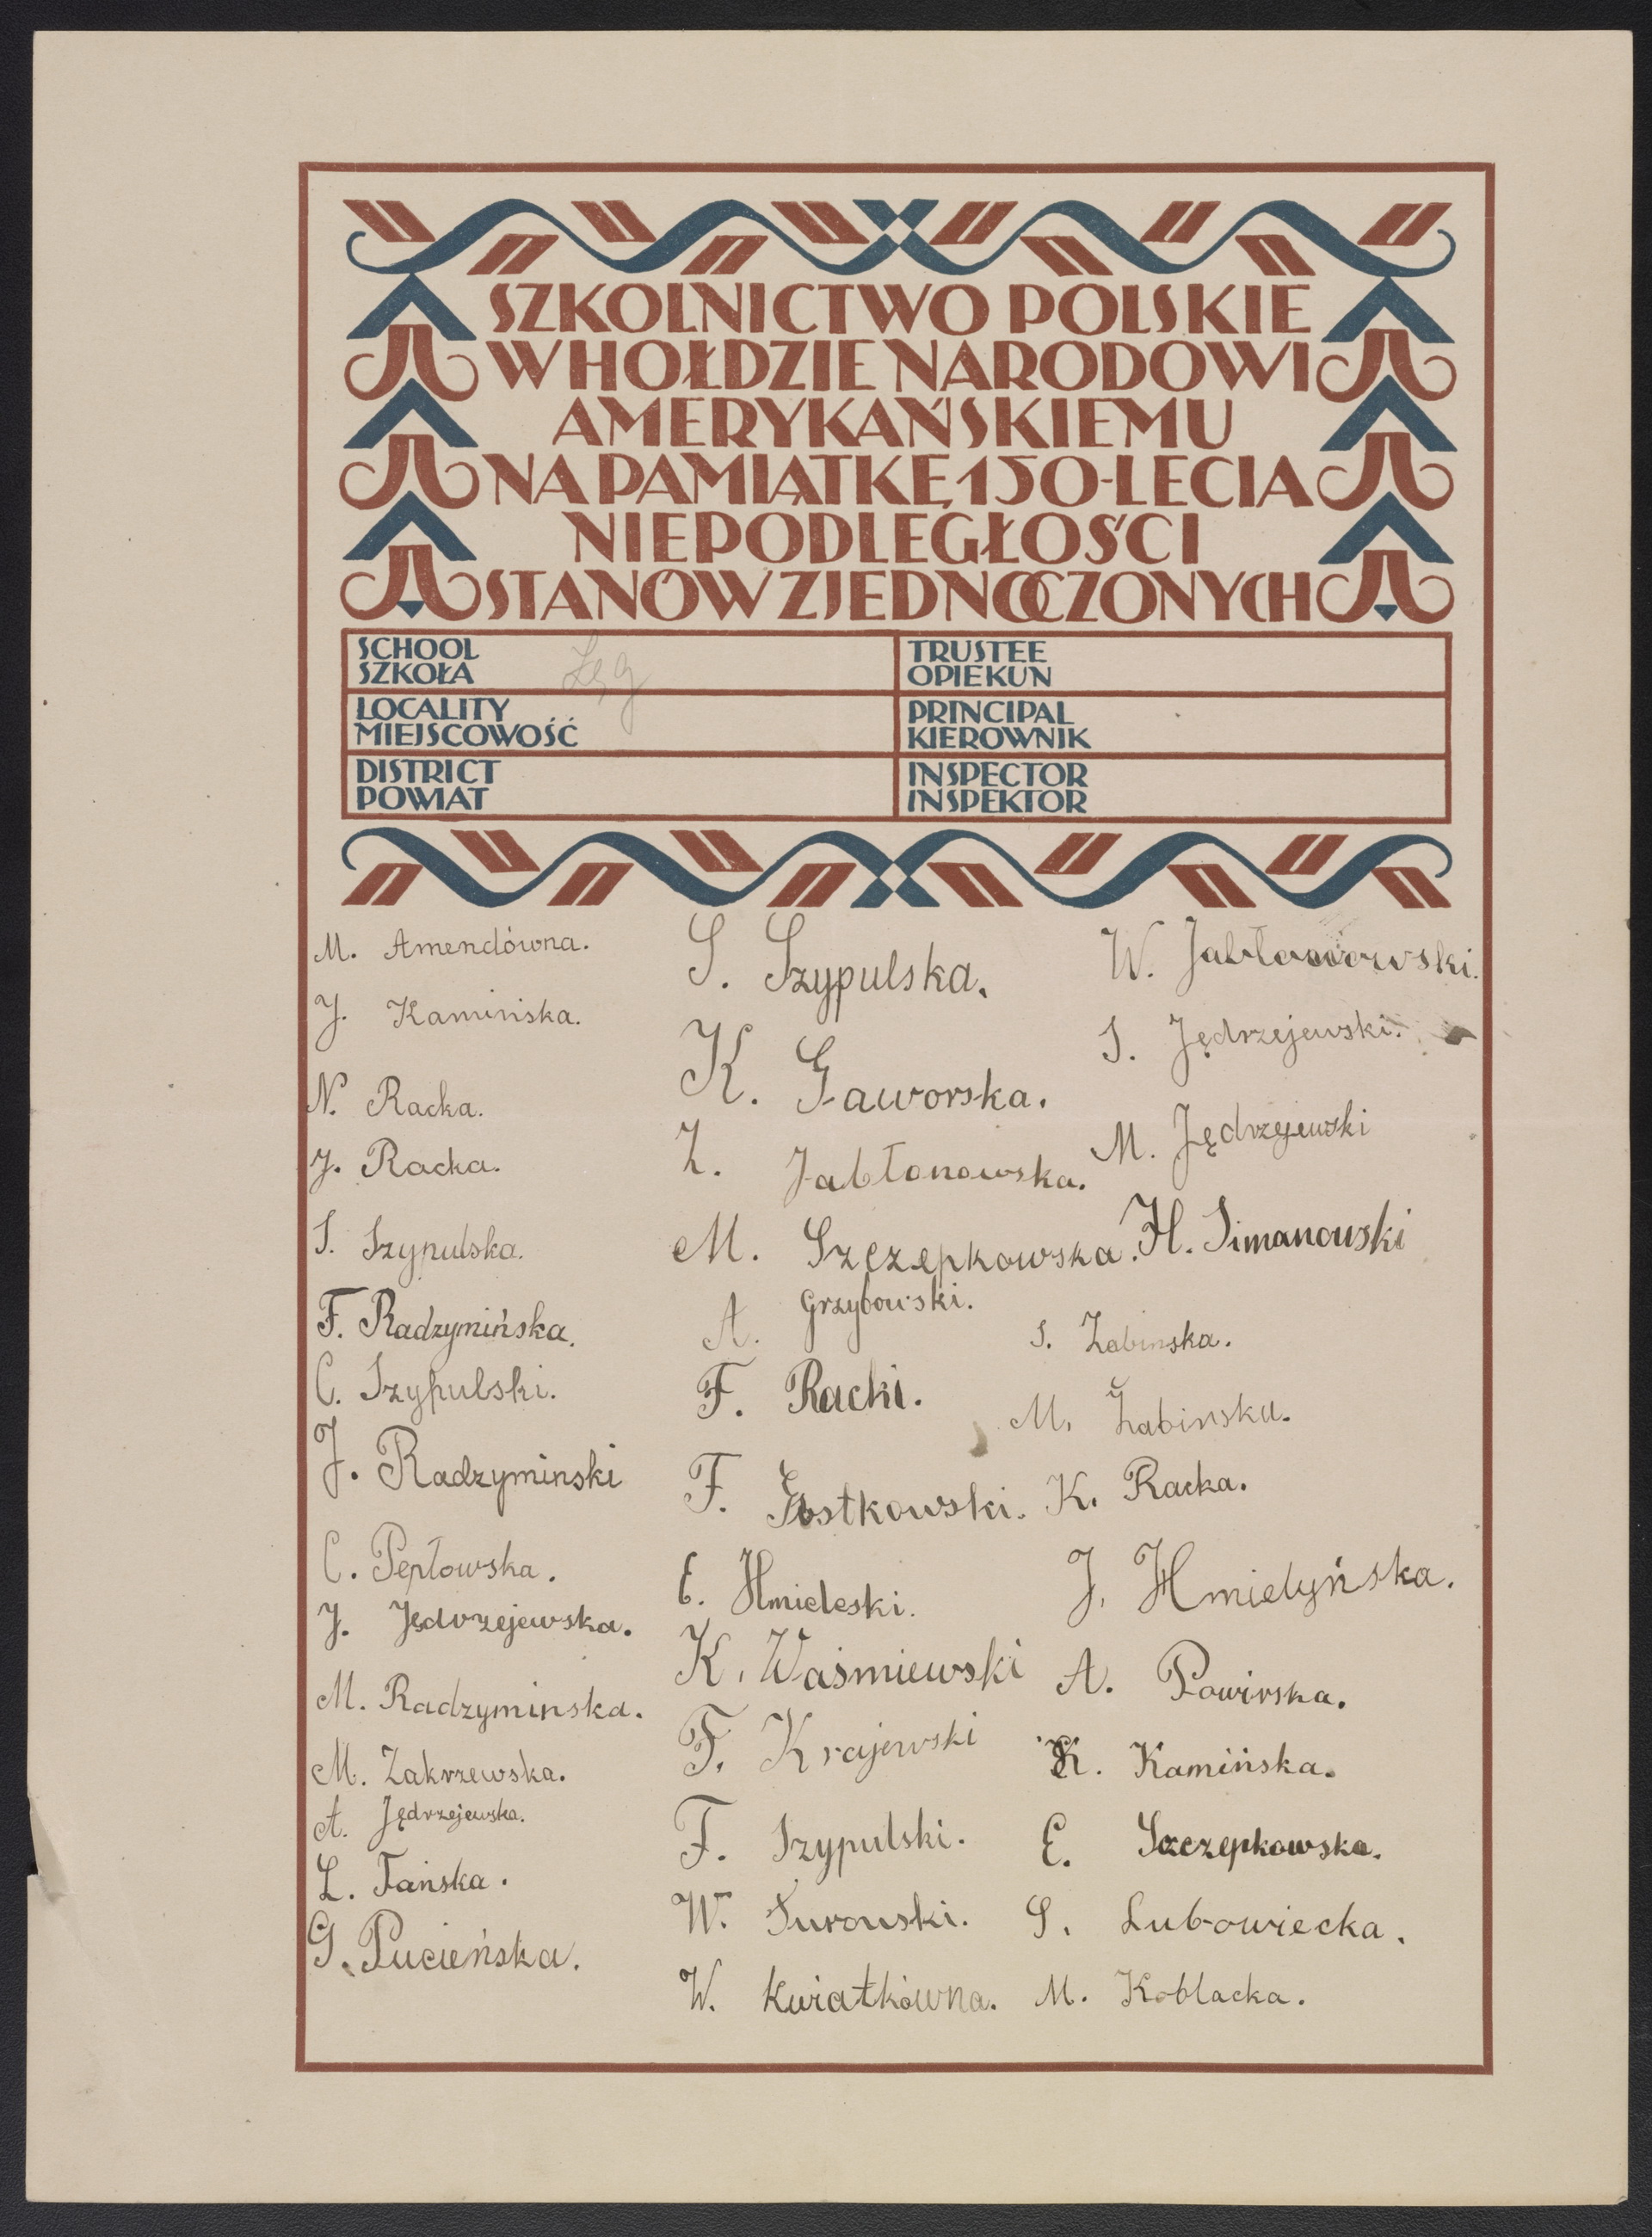 SZKOLNICTWO POLSKIE
W HOŁDZIE NARODOWI
AMERYKAŃSKIEMU
NA PAMIĄTKĘ 150-LECIA
NIEPODLEGŁOŚCI
STANÓW ZJEDNOCZONYCH
SCHOOL
SZKOŁA
Łęg
TRUSTEE
OPIEKUN
LOCALITY
MIEJSCOWOŚĆ
PRINCIPAL
KIEROWNIK
DISTRICT
POWIAT
INSPECTOR
INSPEKTOR
M. Amendówna.
J. Kamińska.
N. Racka.
J. Racka.
S. Szypulska.
F. Radzymińska.
C. Szypulski.
J. Radzyminski
C. Pepłowska.
J. Jędrzejewska.
M. Radzyminska.
M. Zakrzewska.
A. Jędrzejewska.
L. Fańska.
G. Pucieńska.
S. Szypulska.
K. Gaworska.
Z. Jabłonowska.
M. Szczepkowska.
A. Grzybowski.
F. Racki.
F. Kostkowski.
E. Hmieleski.
K. Waśmiewski
F. Krajewski
F. Szypulski.
W. Żurowski.
W. Kwiatkówna.
W. Jabłonowski.
S. Jędrzejewski.
M. Jędrzejewski
H. Simanowski
S. Żabinska.
M. Żabinska.
K. Racka.
J. Hmielyńska.
A. Powirska.
K. Kamińska.
E. Szczepkowska.
S. Lubowiecka.
M. Koblacka.